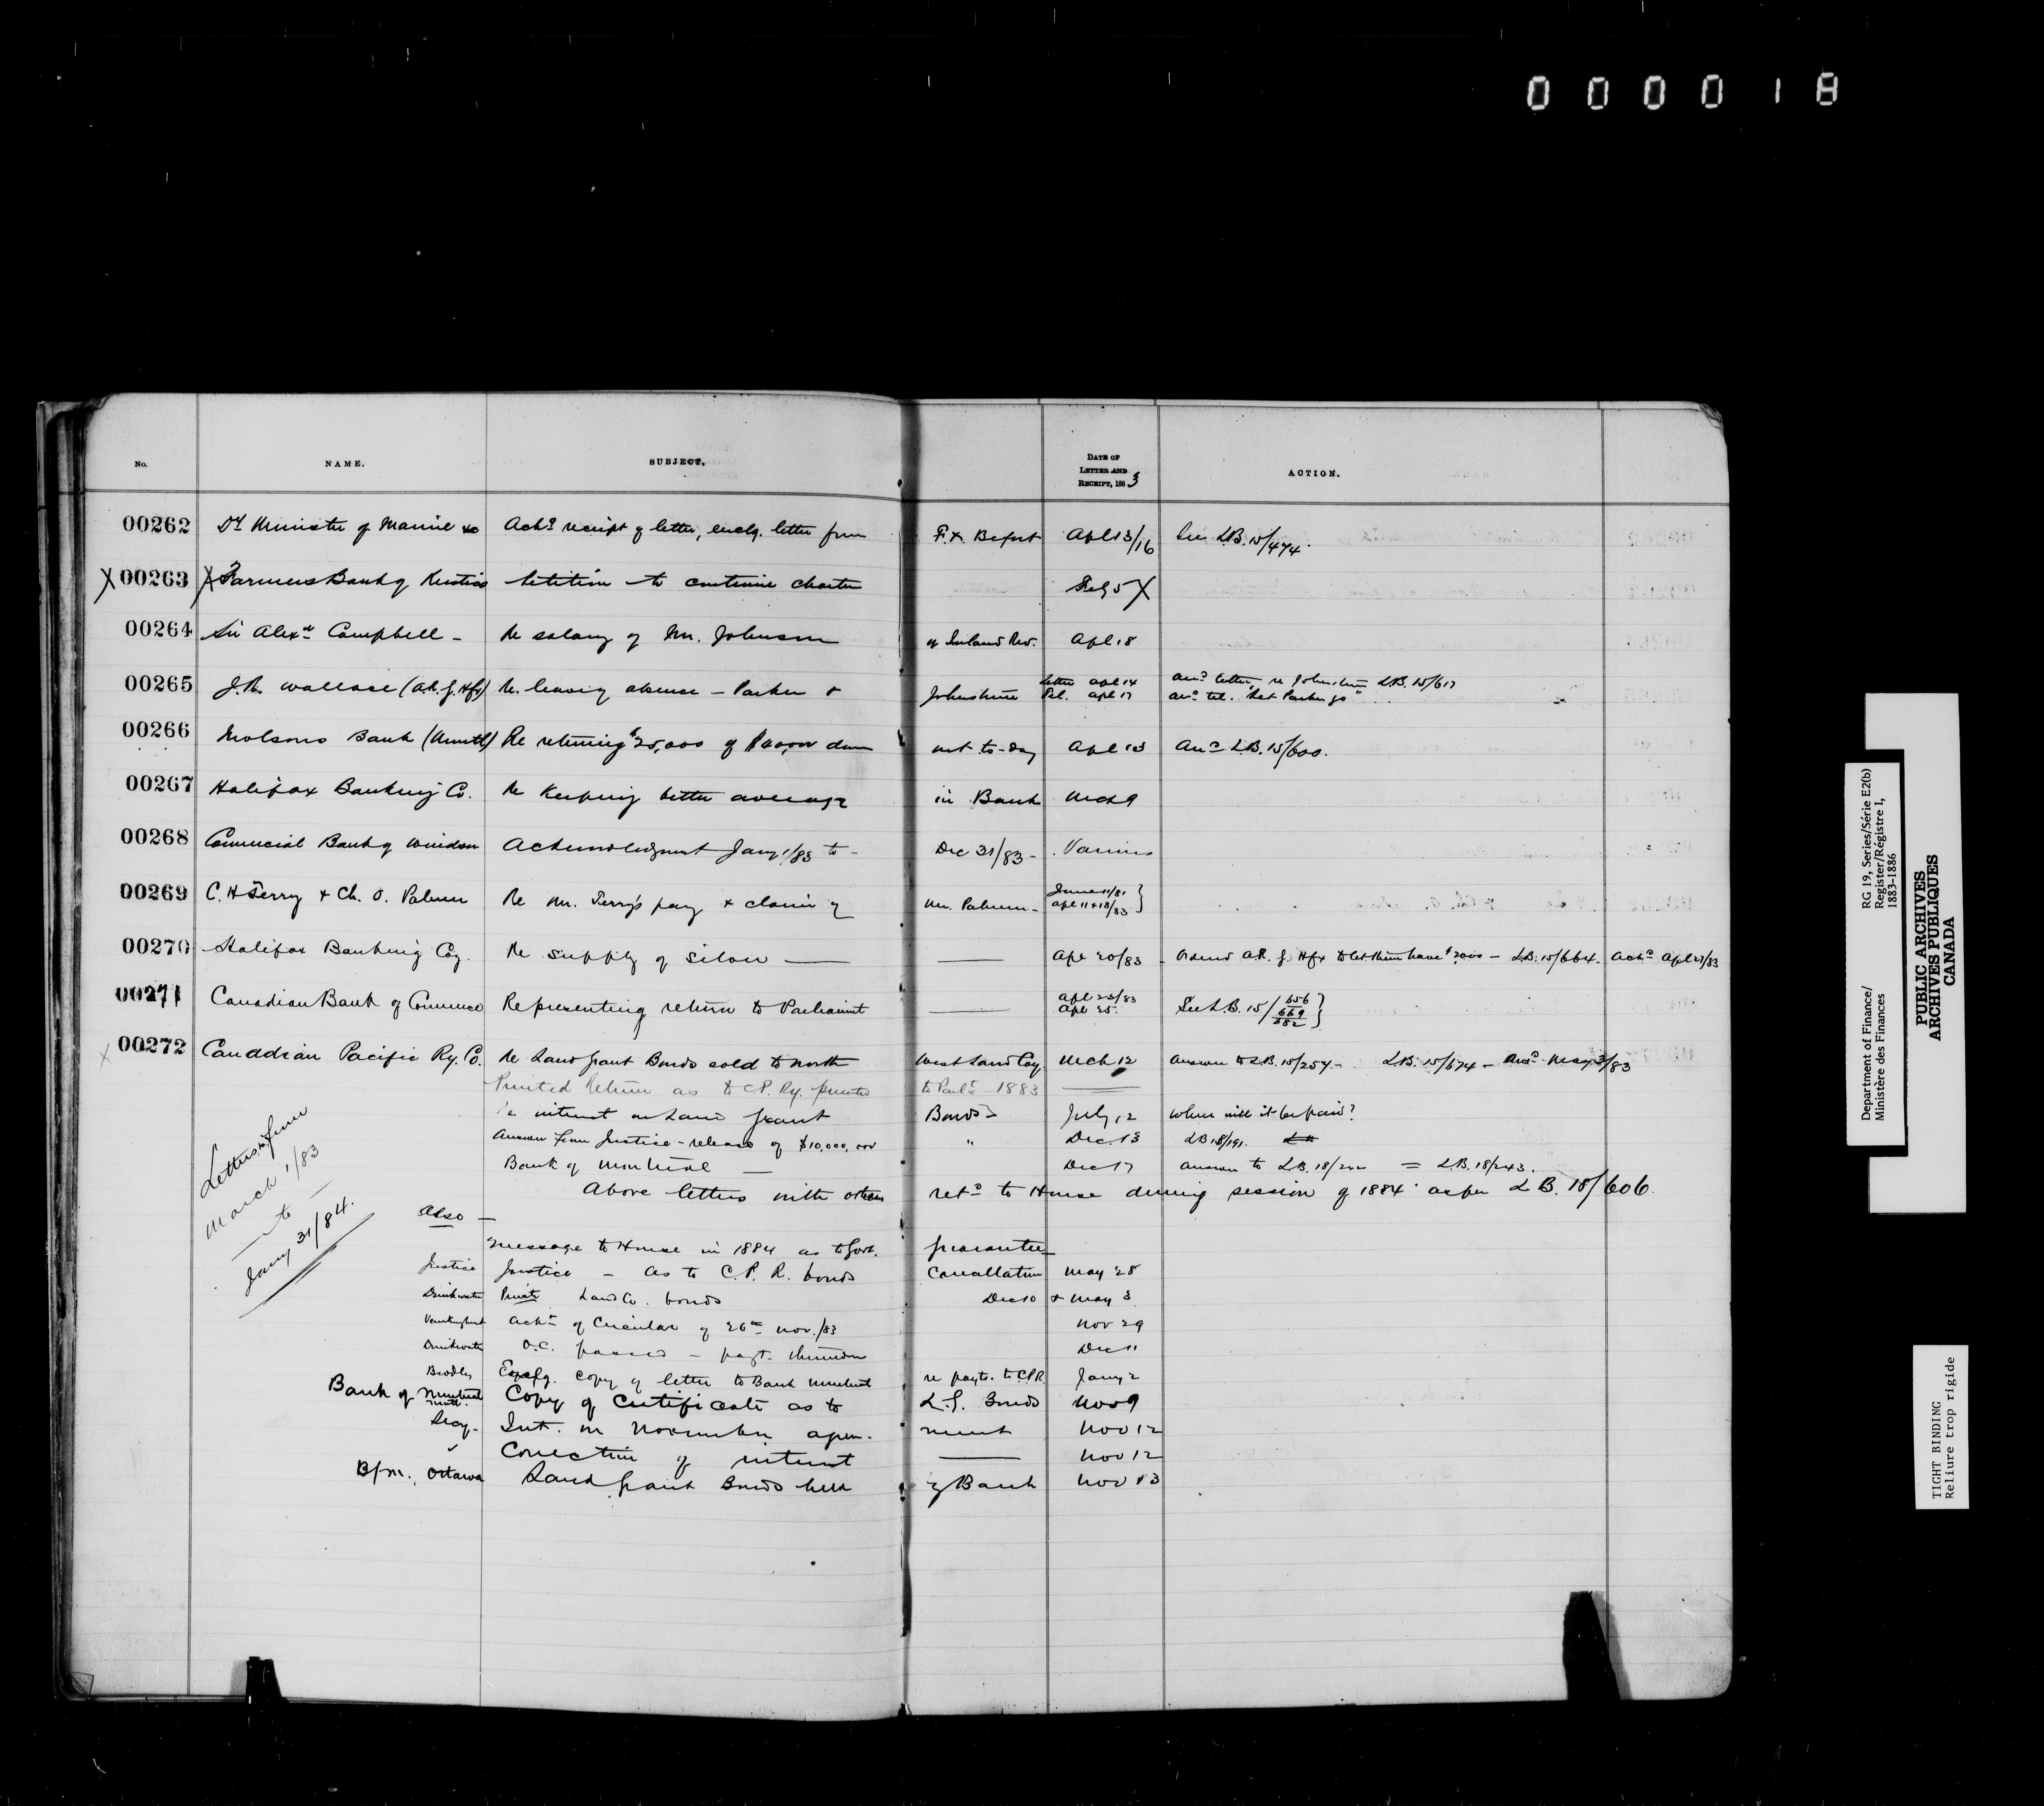 000018
No. NAME. SUBJECT. DATE OF LETTER AND RECEIPT, 1883 ACTION.
00262 Dy Minister of Marine &c Ackg receipt of letter, enclg. letter from F.X. Apl 13/16 See L.B. 15/474.
X 00263 X Farmers Bank of Rustico Petition to continue charter Feby 5 X
00264 Sir Alexr Campbell - Re salary of Mr. Johnson of Inland Rev. Apl 18
00265 J.R. Wallace (A.R.G. Hfx) Re. leave of absence - Parker & Johnstone Letter apl 14 Tel. apl 17 ansd letter, re Johnstone L.B. 15/617 ansd tel. "Let Parker go"
00266 Molsons Bank (Montl) Re returning $25,000 of due not to-day Apl 13 Ansd L.B. 15/600.
00267 Halifax Banking Co. Re Keeping better average in Bank Mch 9
00268 Commercial Bank of Windsor Acknowledgment Jany 1/83 to - Dec 31/83 - Various
00269 C. H Terry & Ch. O. Palmer Re Mr. Terry's pay & claim of Mr. Palmer - June 11/81 apl 11 & 13/83 }
00270 Halifax Banking Coy. Re supply of silver — — Apl 20/83 - Ordered A.R.G. Hfx to let them have $2000 - L.B. 15/664. Ackd Apl 27/83
00271 Canadian Bank of Commerce Representing return to Parliament — Apl 23/83 Apl 25. See L.B. 15/ 656 669 682 }
X 00272 Canadian Pacific Ry. Co. Re Land grant Bonds sold to North West Land Coy. Mch 12 Answer to L.B. 15/254 - L.B. 15/674 - Ansd May 3/83
Printed Return as to C.P. Ry. printed to Parlt - 1883 —
Re interest on Land grant Bonds July 12 When will it be paid?
Answer from Justice - release of $10,000,000 " Dec. 13 LB 18/191.
Bank of Montreal — Dec 17 answer to L.B. 18/200 = L.B. 18/243.
Above letters with others retd to House during session of 1884 as per L B. 18/606.
Letters from
March 1/83
to
Jany 31/84.
Also —
Message to House in 1884 as to Govt. guarantee
Justice Justice - as to C. P. R. bonds Cancellation May 28
Drinkwater Private Land Co. bonds Dec 10 & May 3
Ackt of Circular of 26th Nov./83 Nov 29
Drinkwater O.C. passed - payt. Dec 11
copy of letter to Bank Montreal re payts. to C.P.R. Jany 2
Bank of Montreal Montl. Copy of Certificate as to L.G. Bonds Nov 9
Int. on November Nov 12
Correction of interest — Nov 12
B/M., Ottawa Land grant Bonds held by Bank Nov 13
Department of Finance/
Ministère des Finances
RG 19, Series/Série E2(b)
Register/Régistre I,
1883-1886
PUBLIC ARCHIVES
ARCHIVES PUBLIQUES
CANADA
TIGHT BINDING
Reliure trop rigide